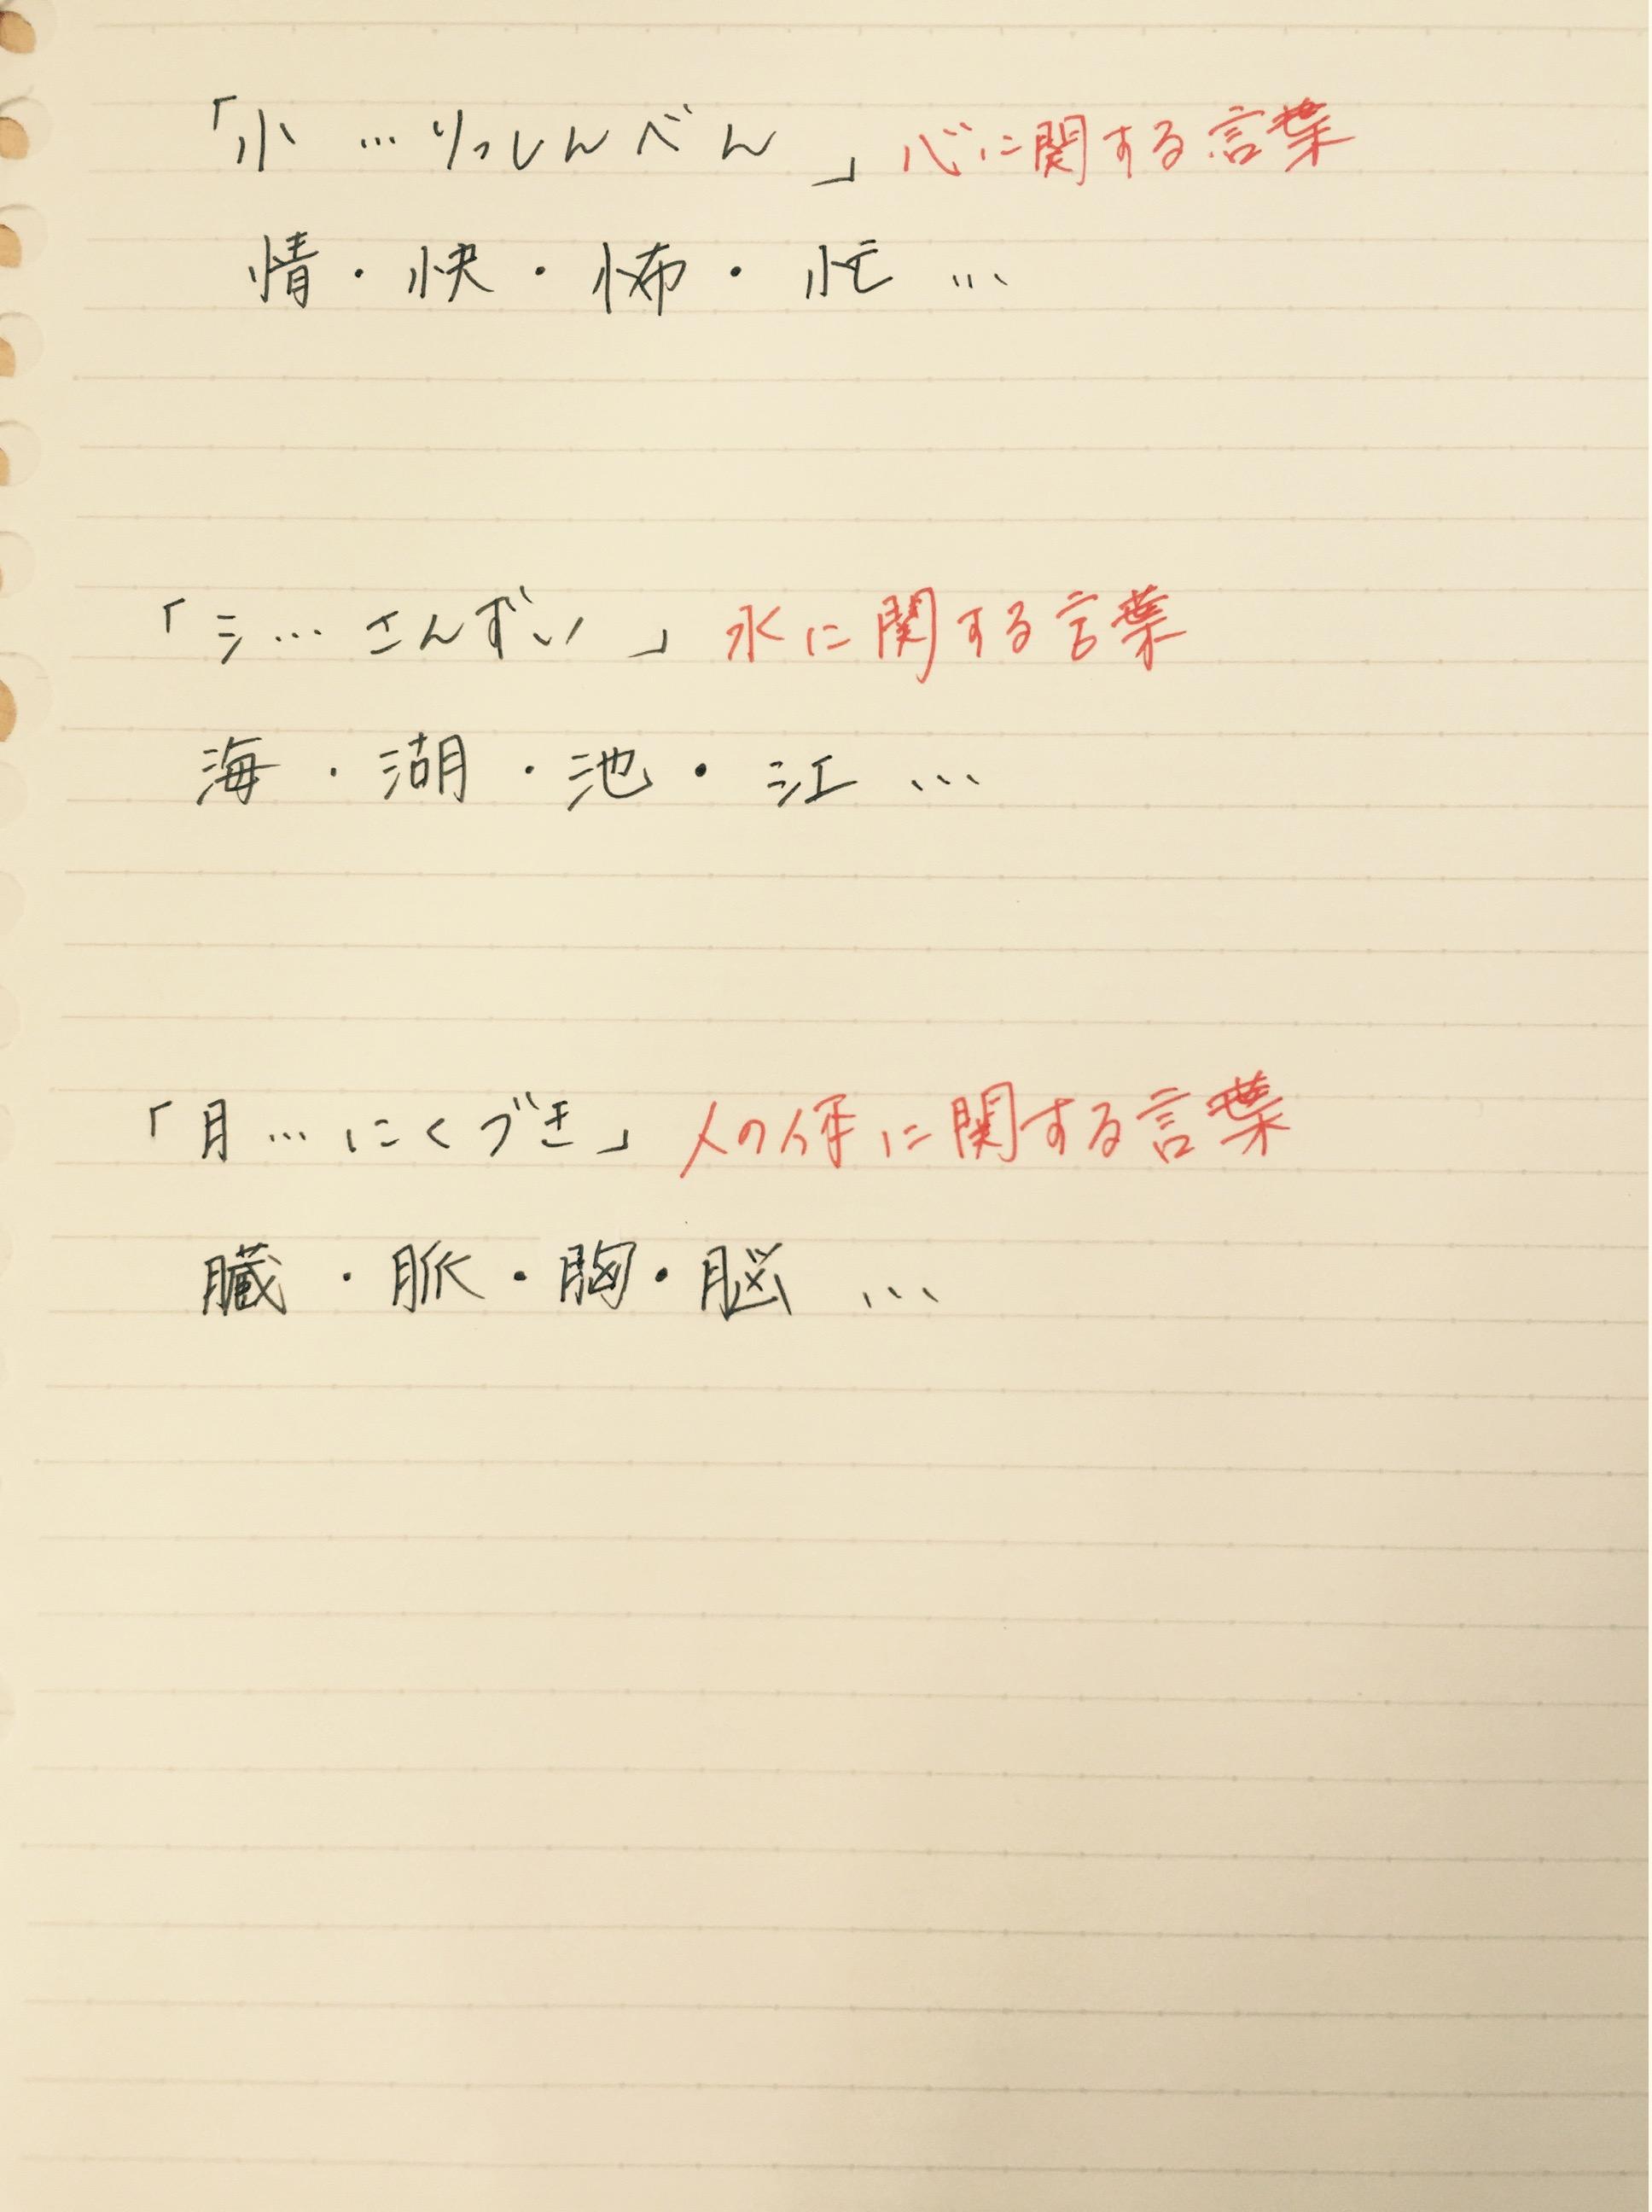 「忄…りっしんべん」心に関する言葉
情・快・怖・忙…
「氵…さんずい」水に関する言葉
海・湖・池・江…
「月…にくづき」人の体に関する言葉
臓・脈・胸・脳…